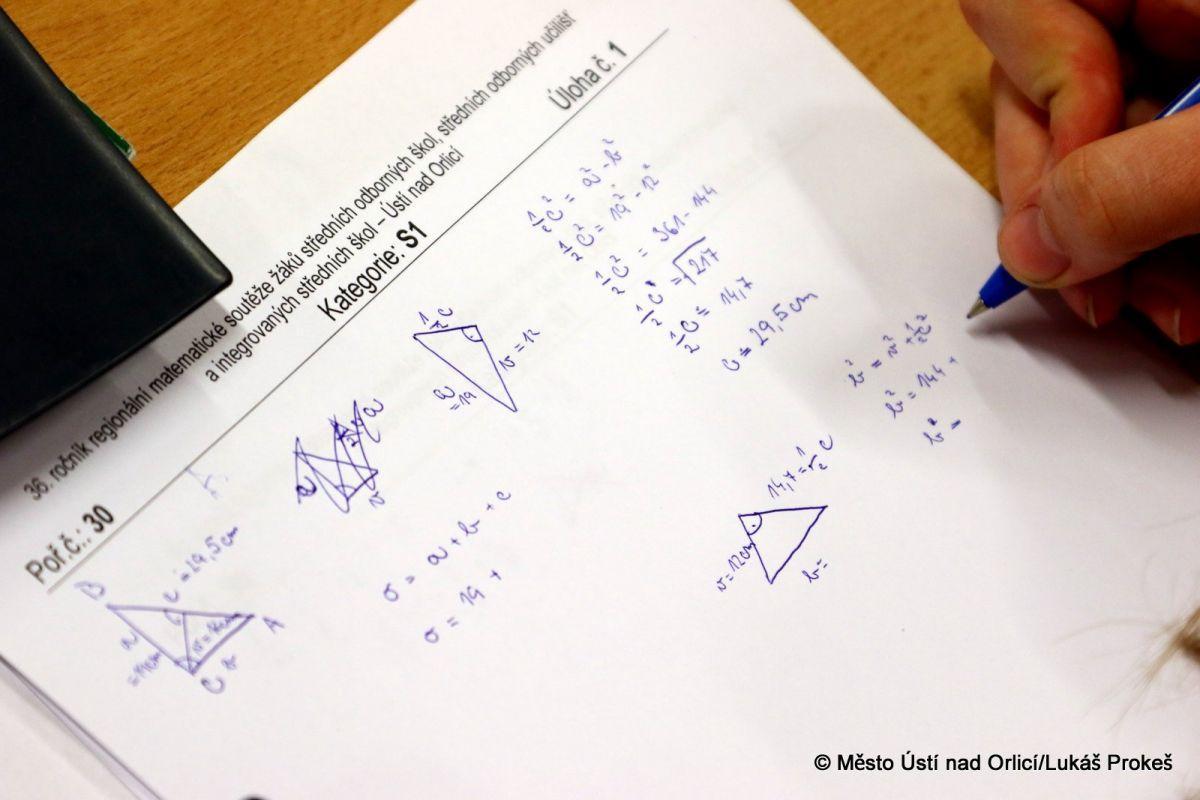 36. ročník regionální matematické soutěže žáků středních odborných škol, středních odborných učilišť
a integrovaných středních škol – Ústí nad Orlicí
Kategorie: S1
Poř.č.: 30
Úloha č. 1
½c² = a² - v²
½c² = 19² - 12²
½c² = 361 - 144
½c = √217
½c = 14,7
c = 29,5 cm
½c
v = 12
a
= 19
B
c = 29,5 cm
a
= 19 cm
A
b
C
o = a + b + c
o = 19 +
14,7 = ½ c
v = 12 cm
b =
b² = v² + ½c²
b² = 144 +
b² =
© Město Ústí nad Orlicí/Lukáš Prokeš